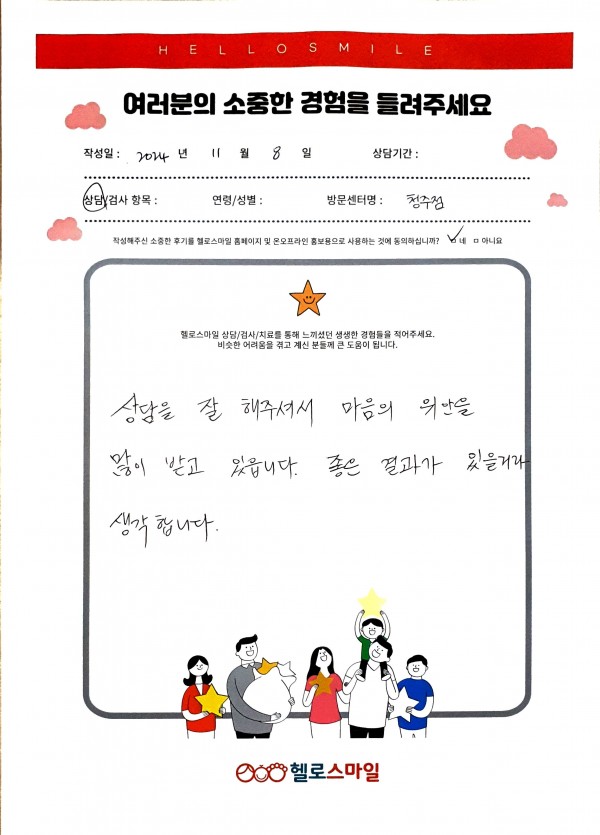 HELLOSMILE
여러분의 소중한 경험을 들려주세요
작성일 : 2024 년 11 월 8 일 상담기간 :
상담/검사 항목 : 연령/성별 : 방문센터명 : 청주점
작성해주신 소중한 후기를 헬로스마일 홈페이지 및 온오프라인 홍보용으로 사용하는 것에 동의하십니까? ㅁ 네 ㅁ 아니요
헬로스마일 상담/검사/치료를 통해 느끼셨던 생생한 경험들을 적어주세요.
비슷한 어려움을 겪고 계신 분들께 큰 도움이 됩니다.
상담을 잘 해주셔서 마음의 위안을
많이 받고 있읍니다. 좋은 결과가 있을거라
생각합니다.
헬로스마일